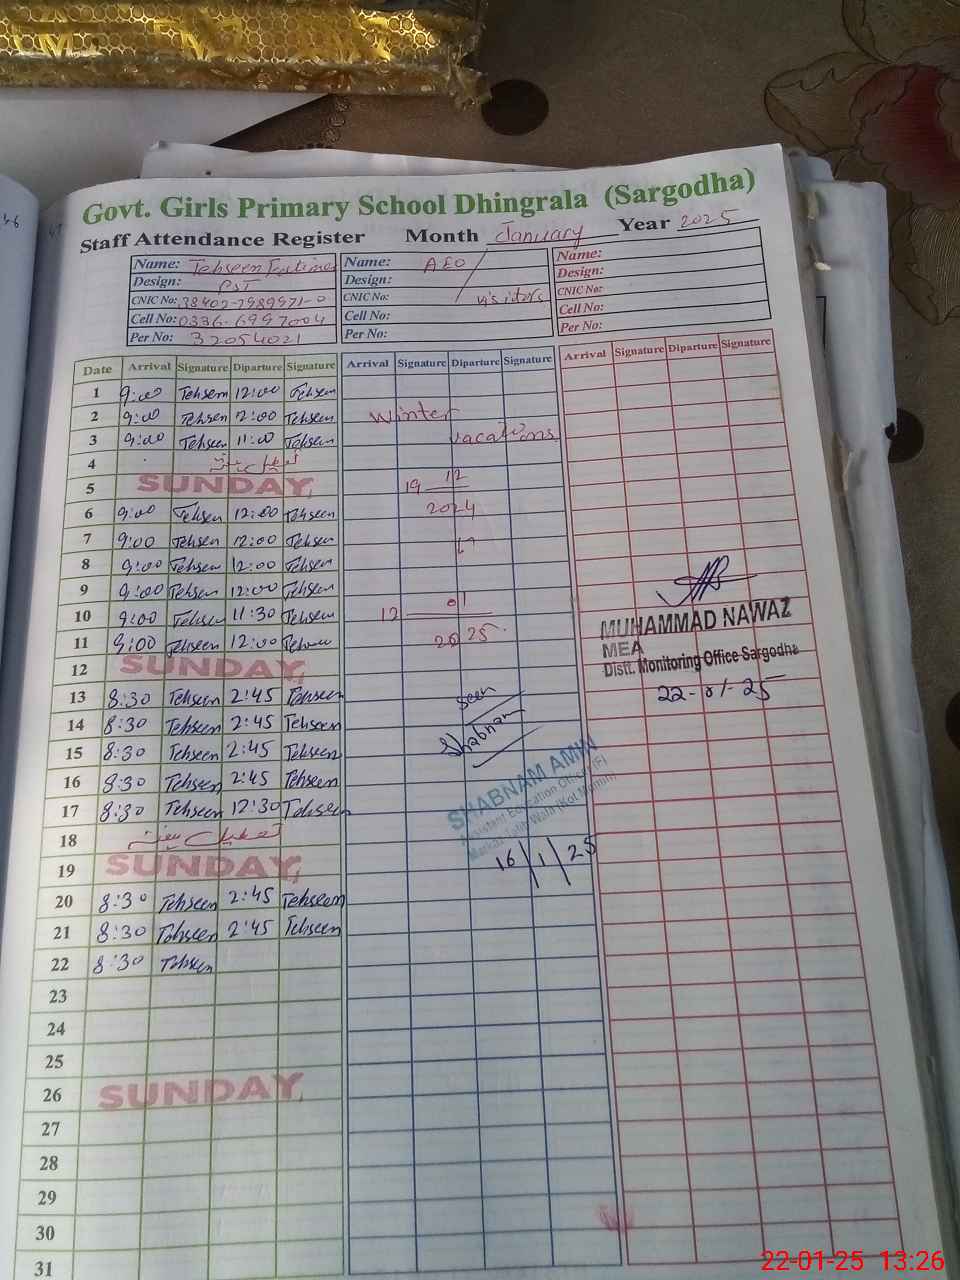 46
Govt. Girls Primary School Dhingrala (Sargodha)
Staff Attendance Register Month January Year 2025
Name: Tehseen Name: AEO Name:
Design: PST Design: Design:
CNIC No: 38402-7989971-0 CNIC No: visitors CNIC No:
Cell No: 0336-6997004 Cell No: Cell No:
Per No: 32054021 Per No: Per No:
Date Arrival Signature Diparture Signature Arrival Signature Diparture Signature Arrival Signature Diparture Signature
1 9:00 Tehseen 12:00 Tehseen
2 9:00 Tehseen 12:00 Tehseen Winter
3 9:00 Tehseen 11:00 Tehseen vacations
4
5 SUNDAY 19 12
6 9:00 Tehseen 12:00 Tehseen 2024
7 9:00 Tehseen 12:00 Tehseen
8 9:00 Tehseen 12:00 Tehseen
9 9:00 Tehseen 12:00 Tehseen
10 9:00 Tehseen 11:30 Tehseen 12 01
11 9:00 Tehseen 12:00 Tehseen 2025
MUHAMMAD NAWAZ
MEA
Distt. Monitoring Office Sargodha
22-01-25
12 SUNDAY
13 8:30 Tehseen 2:45 Tehseen seen
14 8:30 Tehseen 2:45 Tehseen Shabnam
15 8:30 Tehseen 2:45 Tehseen
16 8:30 Tehseen 2:45 Tehseen SHABNAM AMIN
Assistant Education Officer (F)
17 8:30 Tehseen 12:30 Tehseen
18
19 SUNDAY 16/1/25
20 8:30 Tehseen 2:45 Tehseen
21 8:30 Tehseen 2:45 Tehseen
22 8:30 Tehseen
23
24
25
26 SUNDAY
27
28
29
30
31
22-01-25 13:26